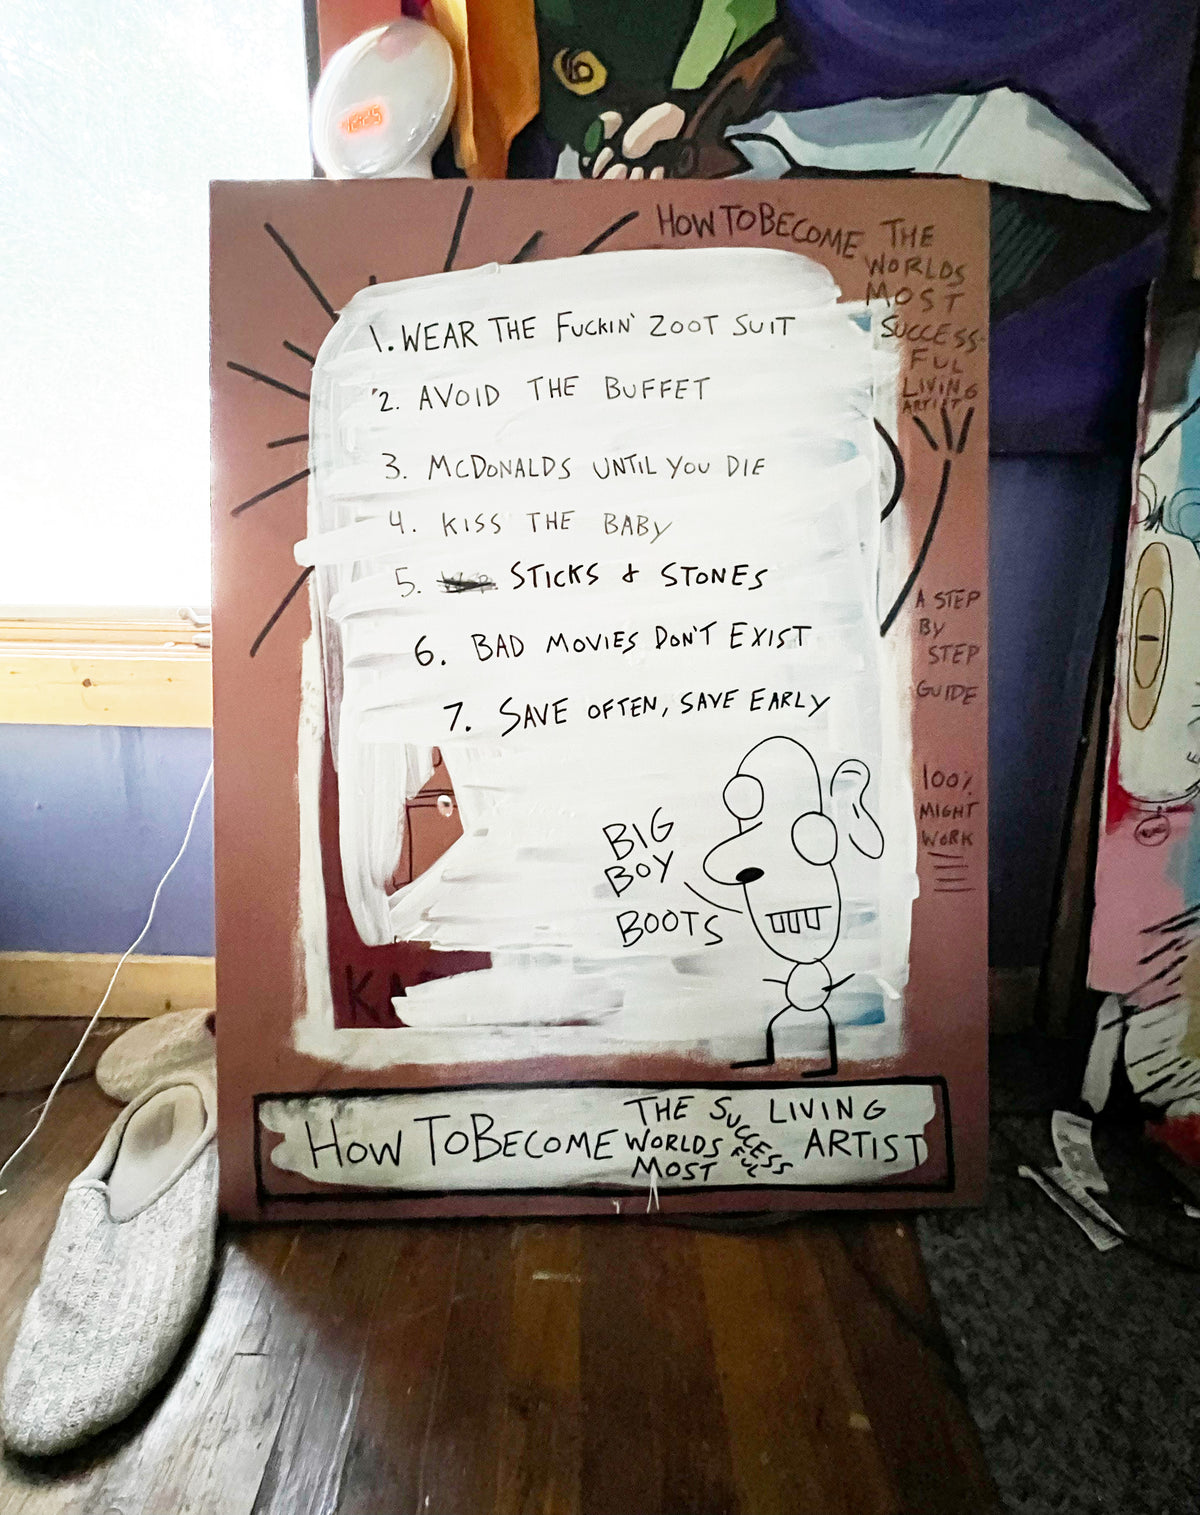 HOW TO BECOME THE
WORLDS
MOST
SUCCESS-
FUL
LIVING
ARTIST
1. WEAR THE FUCKIN' ZOOT SUIT
2. AVOID THE BUFFET
3. MCDONALDS UNTIL YOU DIE
4. KISS THE BABY
5. STICKS & STONES
6. BAD MOVIES DON'T EXIST
7. SAVE OFTEN, SAVE EARLY
A STEP
BY
STEP
GUIDE
100%
MIGHT
WORK
BIG
BOY
BOOTS
HOW TO BECOME THE WORLDS MOST SUCCESSFUL LIVING ARTIST